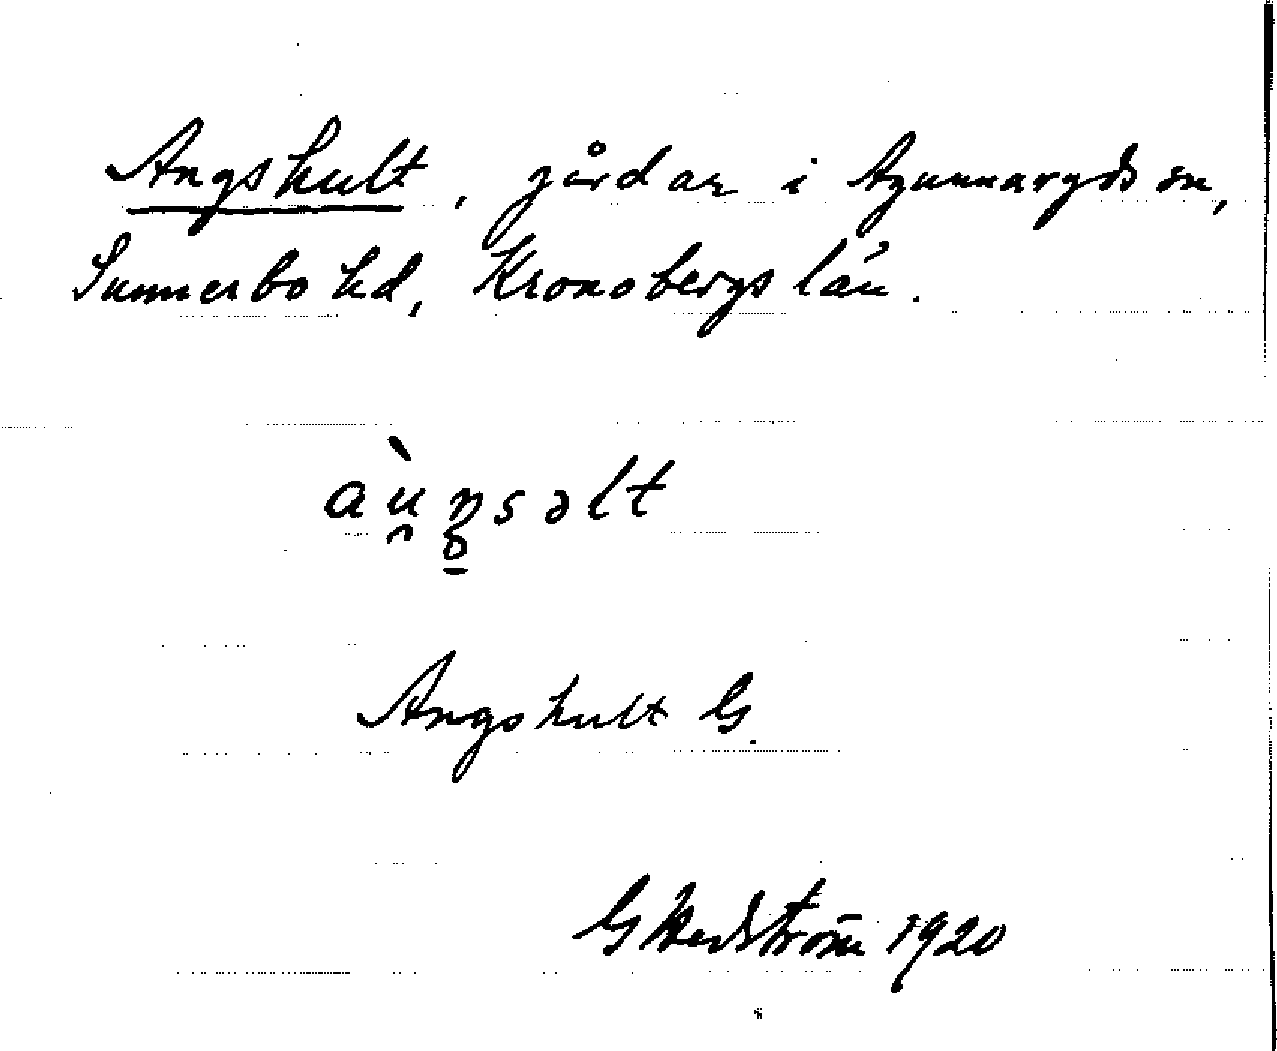 Angshult, gårdar i Agunnaryds sn,
Sunnerbo hd, Kronobergs län.
àu̯ŋ̥səlt
Angshult G.
G Hedström 1920